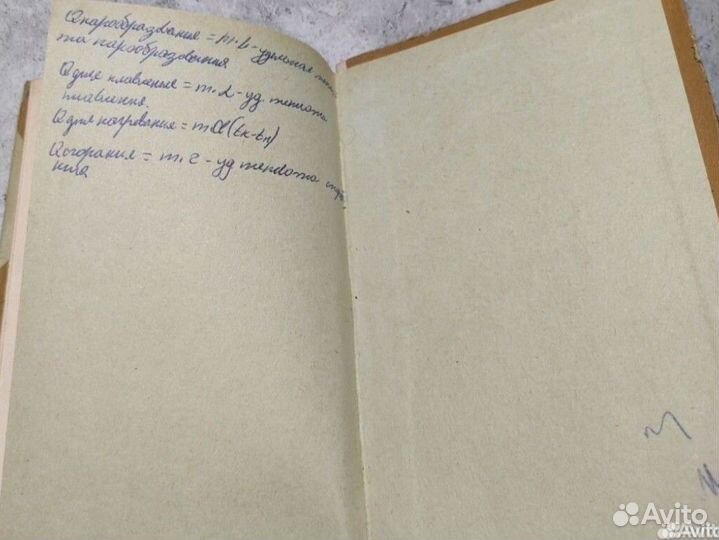 Qпарообразвание = m·L - удельная тепло
та парообразования
Q для плавление = m·λ - уд. теплота
плавления.
Q для нагревания = mC(tк-tн)
Qсгорания = m·г - уд теплота
ния
Avito
Avito